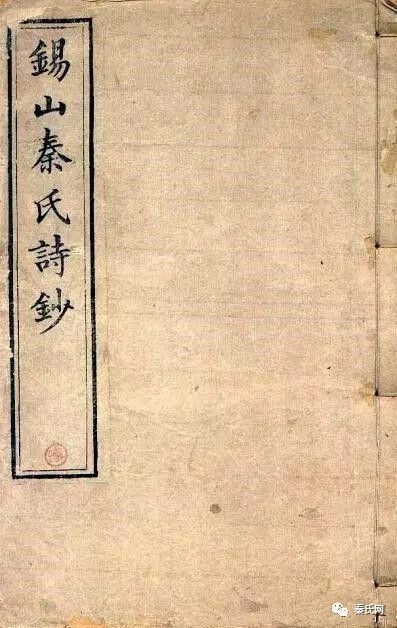 錫山秦氏詩鈔
秦氏网